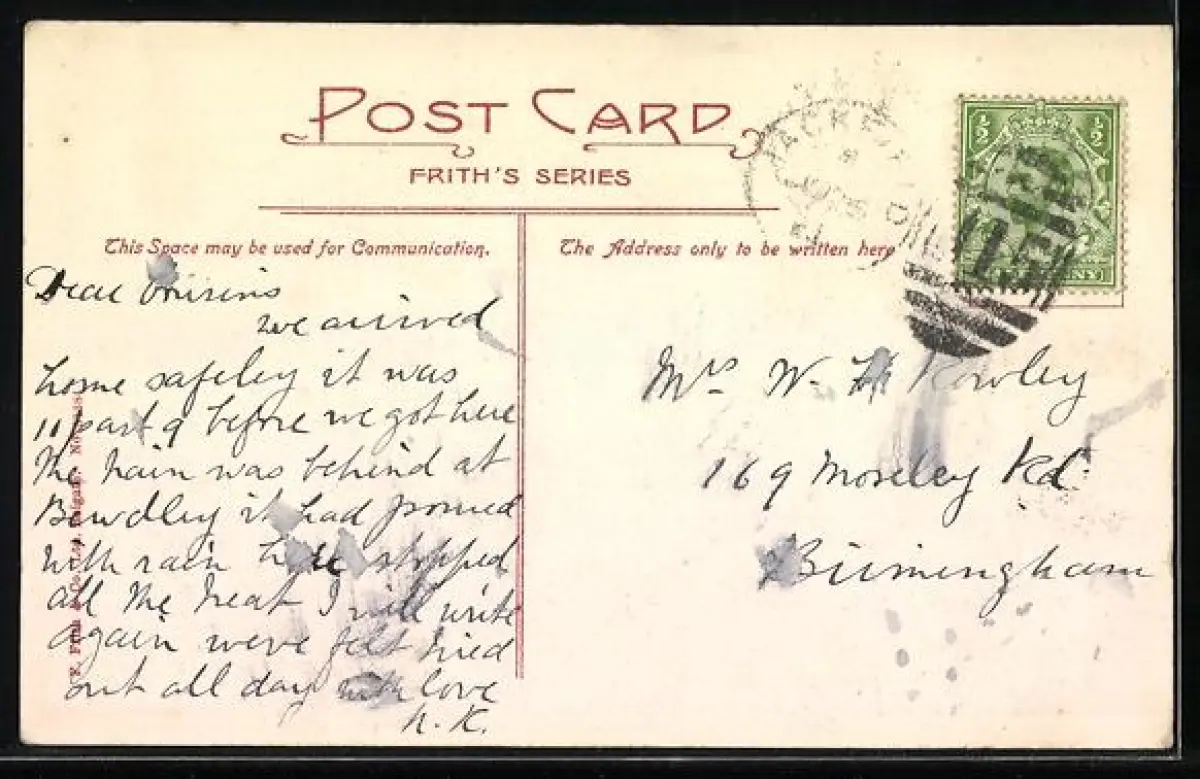 POST CARD
FRITH'S SERIES
This Space may be used for Communication.
The Address only to be written here
Dear Cousins
we arrived
home safeley it was
11/past 9 before we got here
the train was behind at
Bewdley it had poured
with rain here stopped
all the heat I will write
again were felt tired
out all day with love
N. K.
Mrs W. H Rowley
169 Moseley Rd
Birmingham
½ ½
15
F. Frith & Co. Ltd. Reigate.